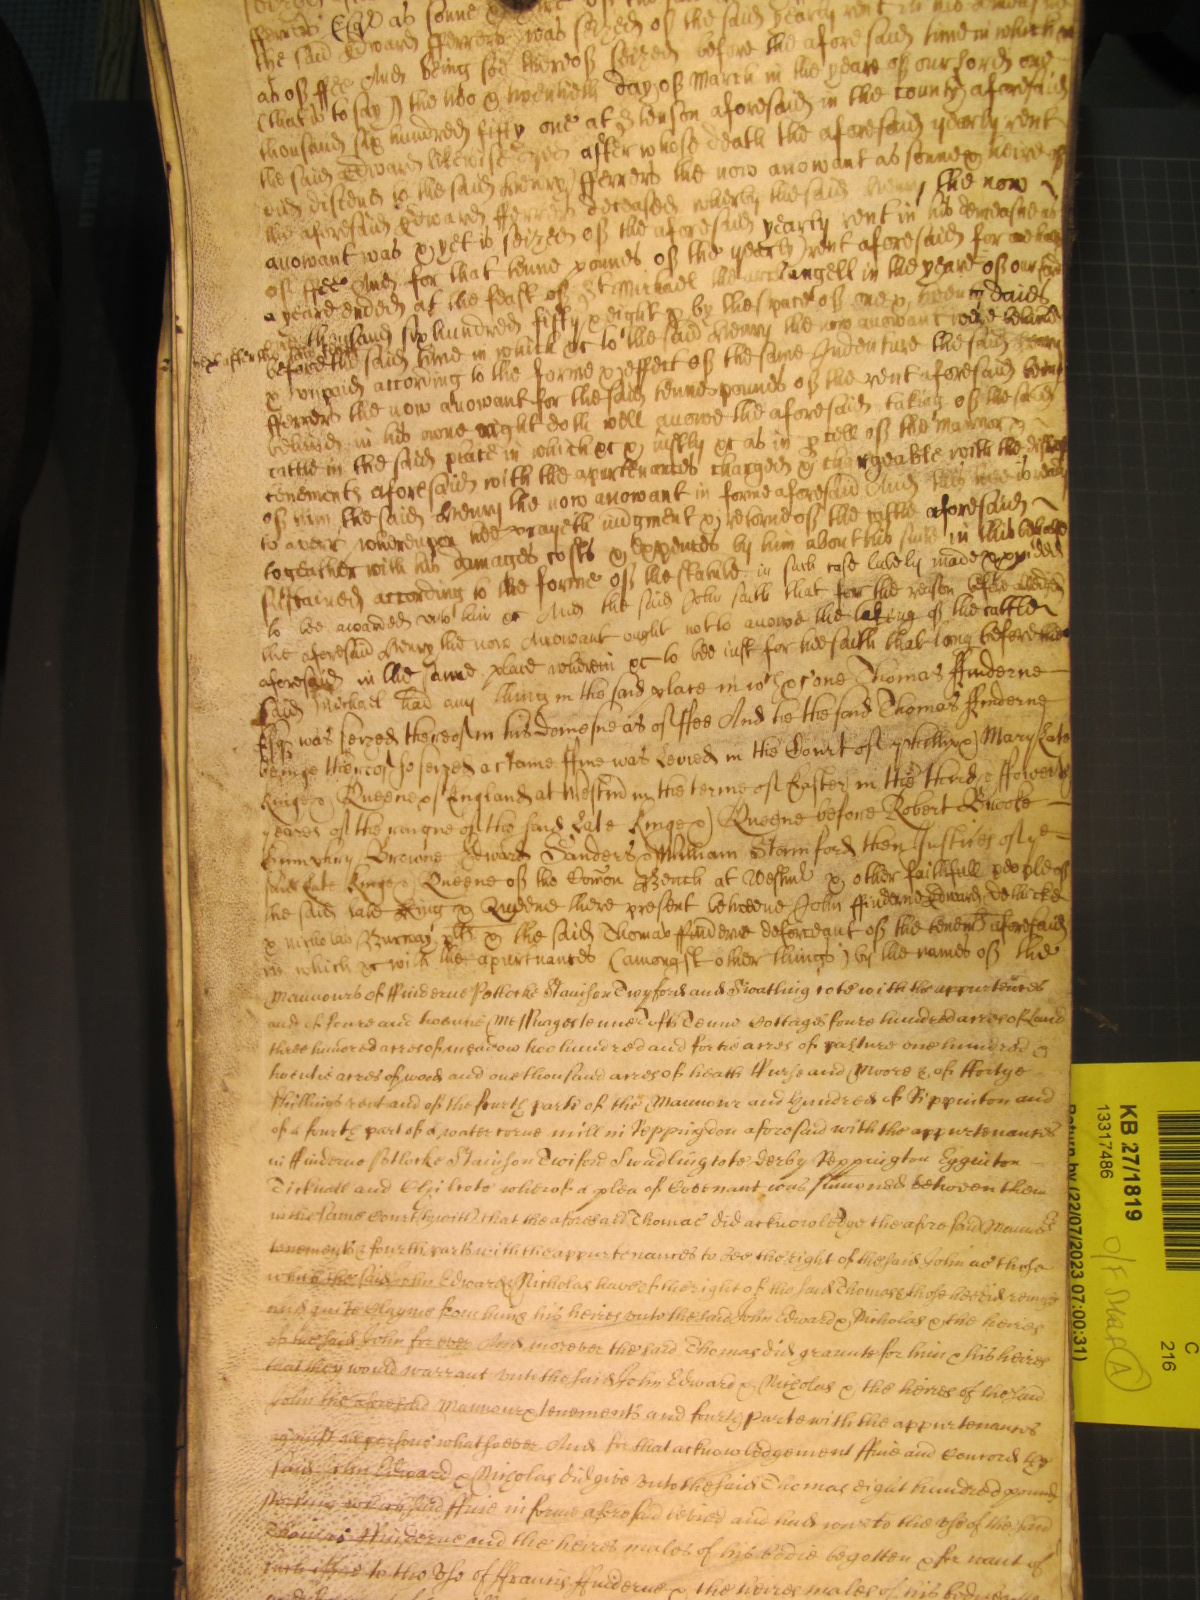 the said Edward fferrers was seized of the said yearly rent in his demeasne
as of ffee And being soe thereof seized before the aforesaid time in which &c
(that is to say) the two & twentieth day of March in the yeare of our Lord one
thousand six hundred fifty one at aforesaid in the county aforesaid
the said Edward likewise dyed after whose death the aforesaid yearly rent
did discend to the said Henry fferrers the now avowant as sonne & heire of
the aforesaid Edward fferrers deceased whereby the said Henry the now
avowant was & yet is seized of the aforesaid yearly rent in his demeasne as
of ffee And for that tenne pounds of the yearly rent aforesaid for one halfe
a yeare ended at the feast of St Michael the archangell in the yeare of our Lord
one thousand six hundred fifty & eight & by the space of one & twenty daies
next after the same feast
before the said time in which &c to the said Henry the now avowant were behind
& unpaid according to the forme & effect of the same Indenture the said Henry
fferrers the now avowant for the said tenne pounds of the rent aforesaid being
behind in his owne right doth well avowe the aforesaid taking of the said
cattle in the said place in which &c & iustly &c as in p cell of the mannor &
tenements aforesaid with the apurtenances charged & chargeable with the distresse
of him the said Henry the now avowant in forme aforesaid And this hee is ready
to averr whereupon hee prayeth iudgment & retorne of the cattle aforesaid
togeather with his damages costs & expences by him about his suite in this behalfe
sustained according to the forme of the statute in such case lately made & pvided
to bee awarded unto him &c And the said John saith that for the reason before alledged
the aforesaid Henry the now Avowant ought not to avowe the taking of the cattle
aforesaid in the same place wherein &c to bee iust for hee saith that long before the
said Michael had any thing in the said place in wch &c one Thomas ffinderne
Esqr was seized thereof in his demesne as of ffee And he the said Thomas ffinderne
beinge thereof so seized a certaine ffine was Levied in the Court of Phillip & Mary Late
Kinge & Queene of England at Westm in the terme of Easter in the third & ffowerth
yeares of the raigne of the said Late Kinge & Queene before Robert Brooke
Humphry Browne Edward Sanders & William Stamford then Justices of ye
said Late Kinge & Queene of the Comon Bench at Westmr & other faithfull people of
the said late King & Queene there present betweene John ffinderne Edward
& Nicholas plts & the said Thomas ffinderne deforceant of the tenemts aforesaid
in which &c with the apurtnances (amongst other things) by the names of the
Mannours of ffinderne Potlocke Stainson Twyford and Swatling cote with the appurtences
and of foure and twenne Messuages tenne Tofts Tenne Cottages foure hundred acres of Land
three hundred acres of meadow two hundred and fortie acres of pasture one hundred &
twentie acres of wood and one thousand acres of heath ffurse and Moore & of ffortye
shillings rent and of the fourth parte of the Mannour and Hundred of Reppinton and
of a fourth part of a water corne mill in Reppingdon aforesaid with the appurtenances
in ffinderne Potlocke Stainson Twiford Swadlingcote Derby Reppington Egginton
Ticknall and whereof a plea of Covenant was sumoned betweene them
in the same Court (to witt) that the aforesaid Thomas did acknowledge the aforesaid Mannors
tenements & fourth parts with the appurtenances to bee the right of the said John as those
which the said John Edward & Nicholas have of the right of the said Thomas & those hee did remise
and quite clayme from him & his heires unto the said John Edward & Nicholas & the heires
of the said John for ever And moreover the said Thomas did graunte for him & his heires
that they would warrant unto the said John Edward & Nicholas & the heires of the said
John the aforesaid Mannours & tenements and fourth parte with the appurtenances
against all persons whatsoever And for that acknowledgement ffine and Concord the
said John Edward & Nicholas did give unto the said Thomas eight hundred pounds
sterling which said ffine in forme aforesaid levied and had was to the use of the said
Thomas ffinderne and the heires males of his bodie begotten & for want of
such issue to the use of ffrancis ffinderne & the heires males of his bodie

KB 27/1819
13317486
Return by (22/07/2023 07:00:31)
C
216